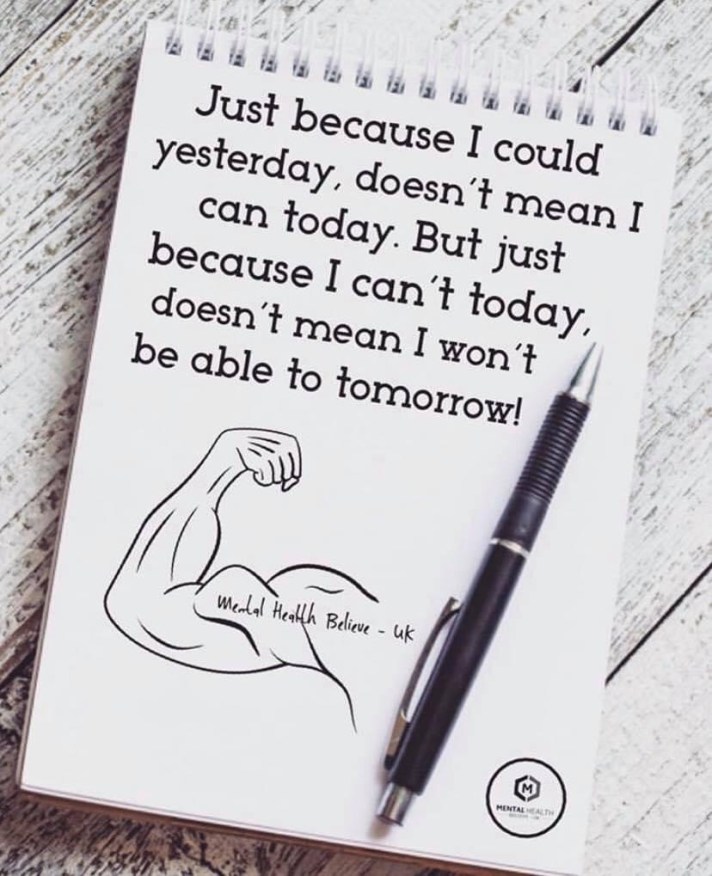 Just because I could
yesterday, doesn't mean I
can today. But just
because I can't today,
doesn't mean I won't
be able to tomorrow!
Mental Health Believe - UK
M
MENTAL HEALTH
BELIEVE - UK